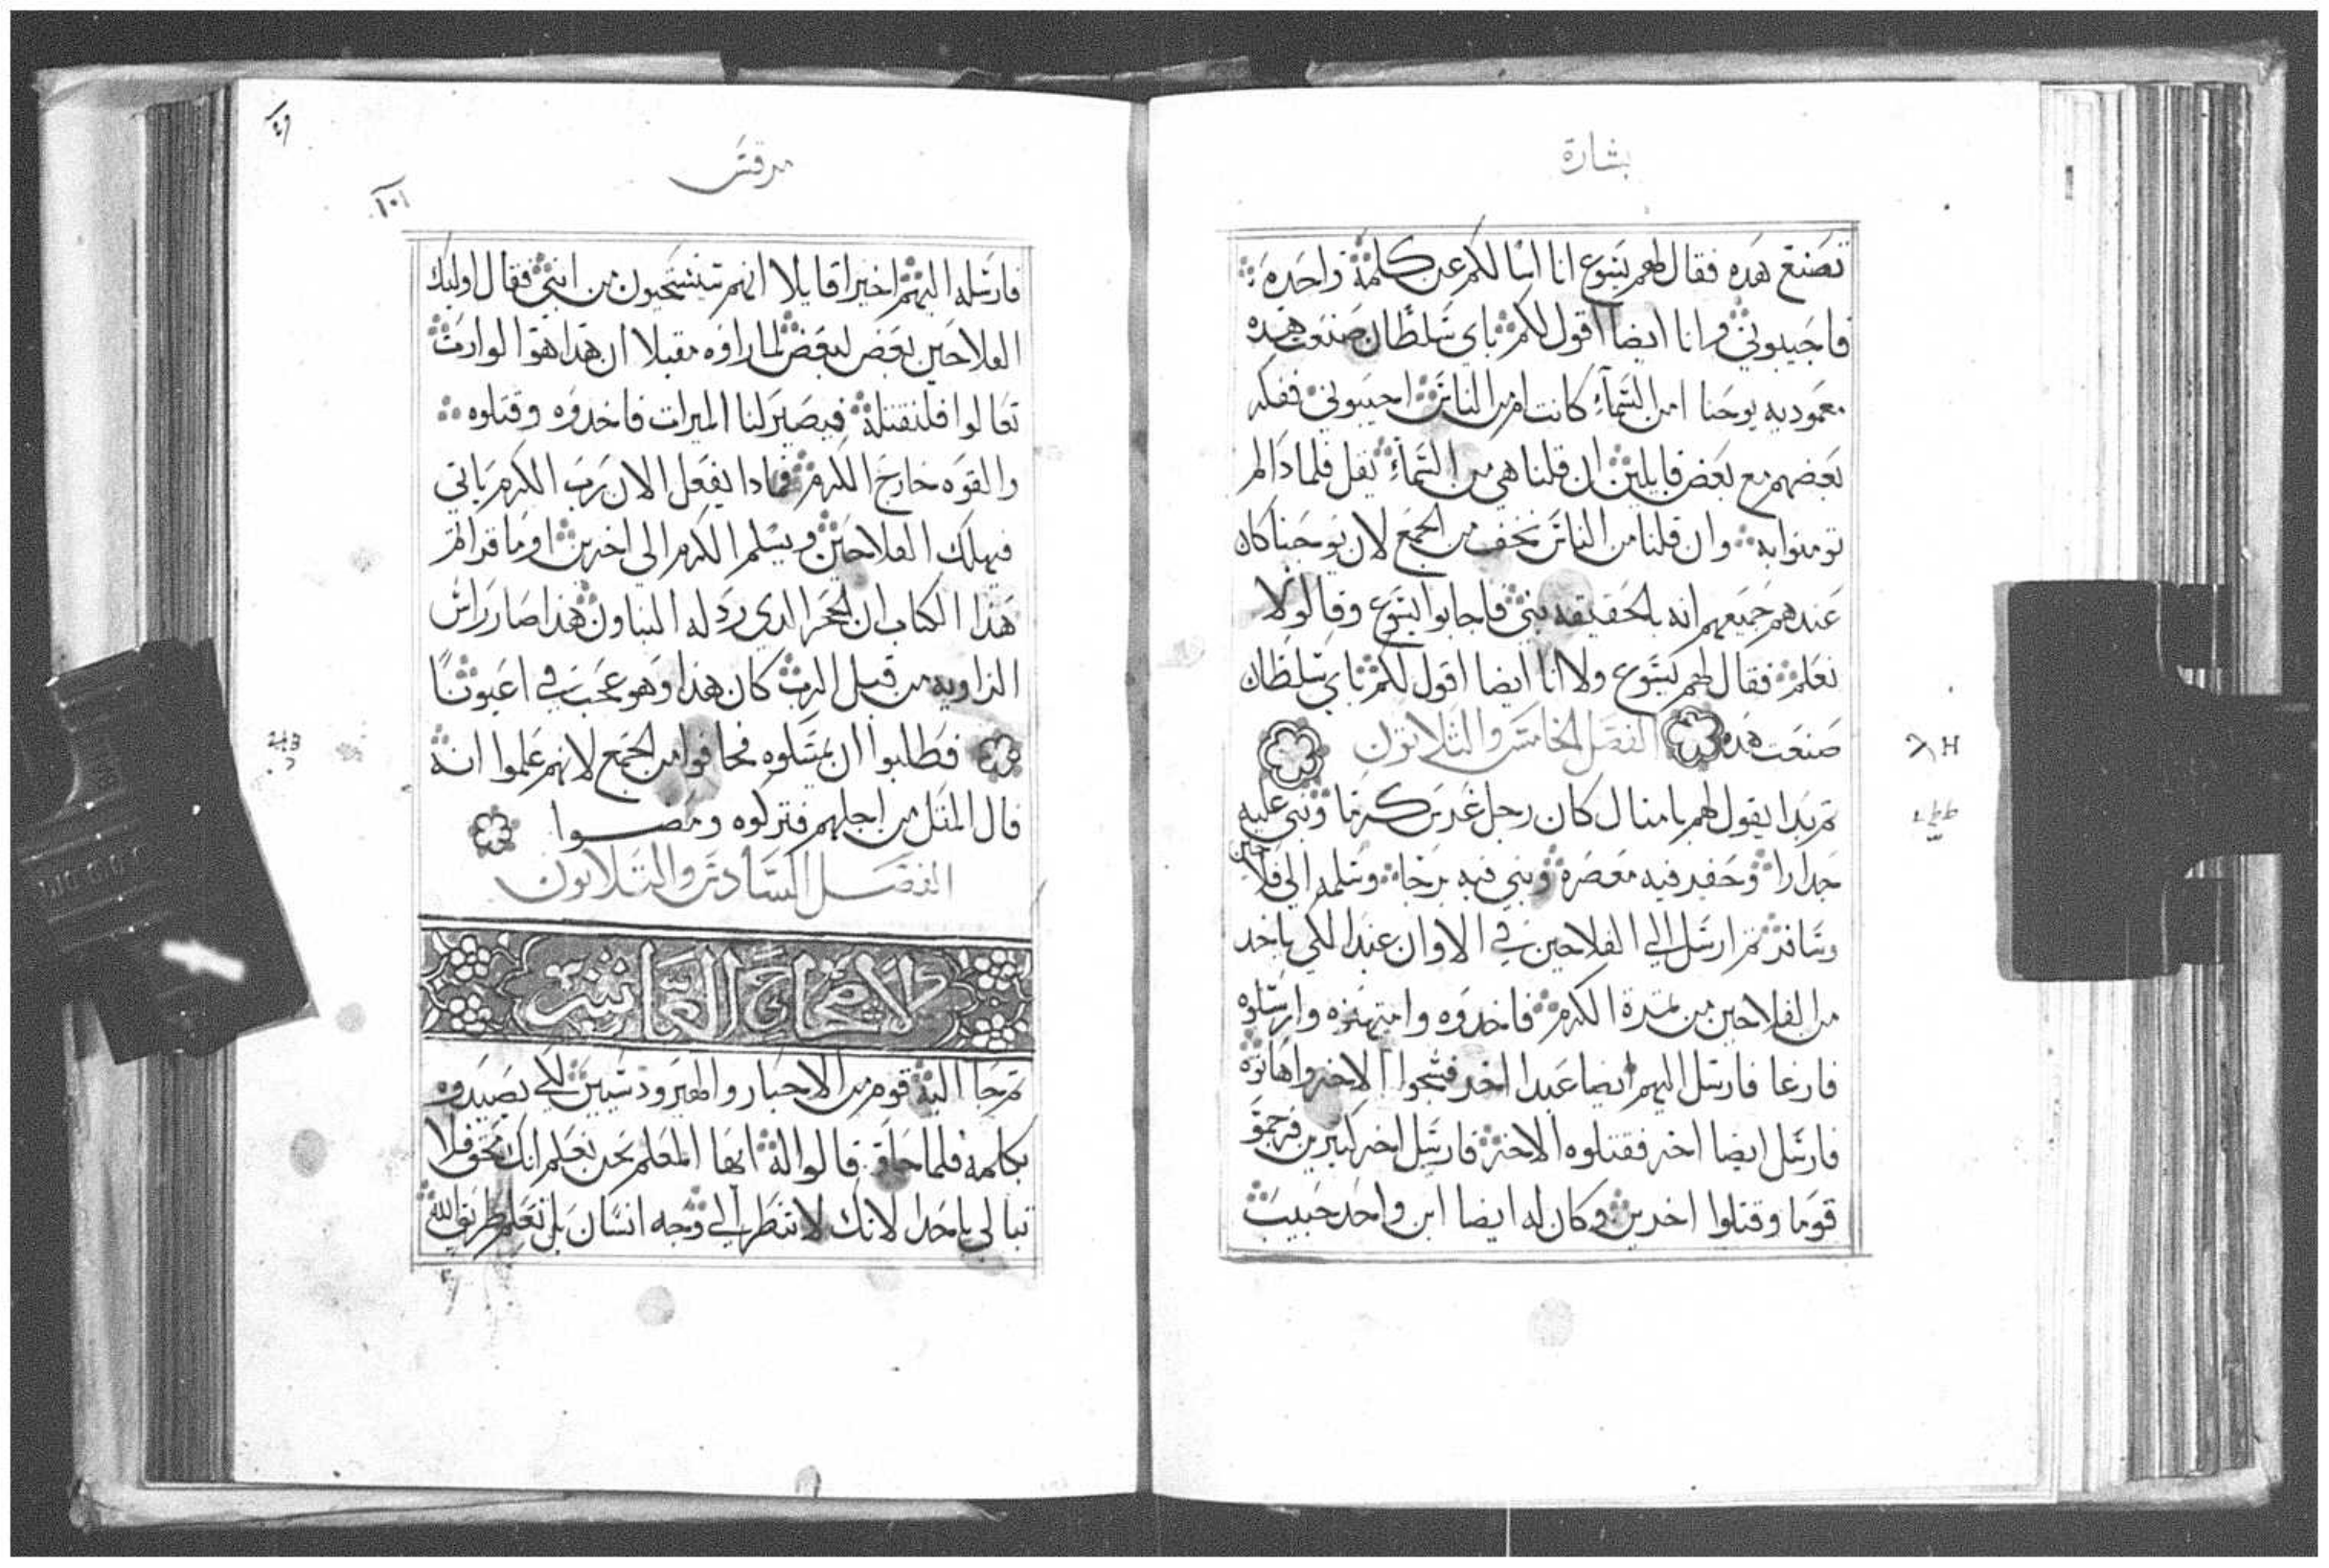 بشارة
تصنع هذه فقال لهم يسوع انا اسالكم عن كلمة واحده
فاجيبوني وانا ايضا اقول لكم باي سلطان صنعت هذه
معموديه يوحنا امن السماء كانت امن الناس اجيبوني ففكر
بعضهم مع بعض قايلين ان قلنا هي من السماء يقل فلماذا لم
تومنوا به وان قلنا من الناس نخف من الجمع لان يوحنا كان
عندهم جميعهم انه بالحقيقه نبي فاجابوا ليسوع وقالو لا
نعلم فقال لهم يسوع ولا انا ايضا اقول لكم باي سلطان
صنعت هذه الفصل الخامس والثلاثون
ثم بدا يقول لهم بامثال كان رجل غرس كرما وبني عليه
جدارا وحفر فيه معصرة وبني فيه برجا وسلمه الي فلاحين
وسافر ثم ارسل الي الفلاحين في الاوان عبدا لكي ياخد
من الفلاحين من ثمرة الكرم فاخدوه وامتهنوه وارسلوه
فارغا فارسل اليهم ايضا عبدا اخر فشجوا الاخر واهانوه
فارسل ايضا اخر فقتلوه الاخر فارسل اخر كثيرين فرجموا
قوما وقتلوا اخرين وكان له ايضا ابن واحد حبيب
مرقس
فارسله اليهم اخيرا قايلا انهم سيستحيون من ابني فقال اوليك
الفلاحين بعض لبعض لما راوه مقبلا ان هذا هو الوارث
تعالوا فلنقتله فيصير لنا الميرات فاخدوه وقتلوه
والقوه خارج الكرم فمادا يفعل الان رب الكرم ياتي
فيهلك الفلاحين ويسلم الكرم الي اخرين اوما قراتم
هذا الكتاب ان الحجر الدي ردله البناون هذا صار راس
الزاويه من قبل الرب كان هذا وهو عجب في اعيوننا
فطلبوا ان يمسلوه فخافوا من الجمع لانهم علموا انه
قال المثل من اجلهم فتركوه ومضوا
الفصل السادس والثلاثون
لاصحاح العاشر
ثم جا اليه قوم من الاحبار والهيرودسيين لكي يصيدوه
بكلمة فلما جا قالوا له ايها المعلم نحن نعلم انك محق فلا
تبالي باحدا لانك لا تنظر الي وجه انسان بل تعلم طريق الله